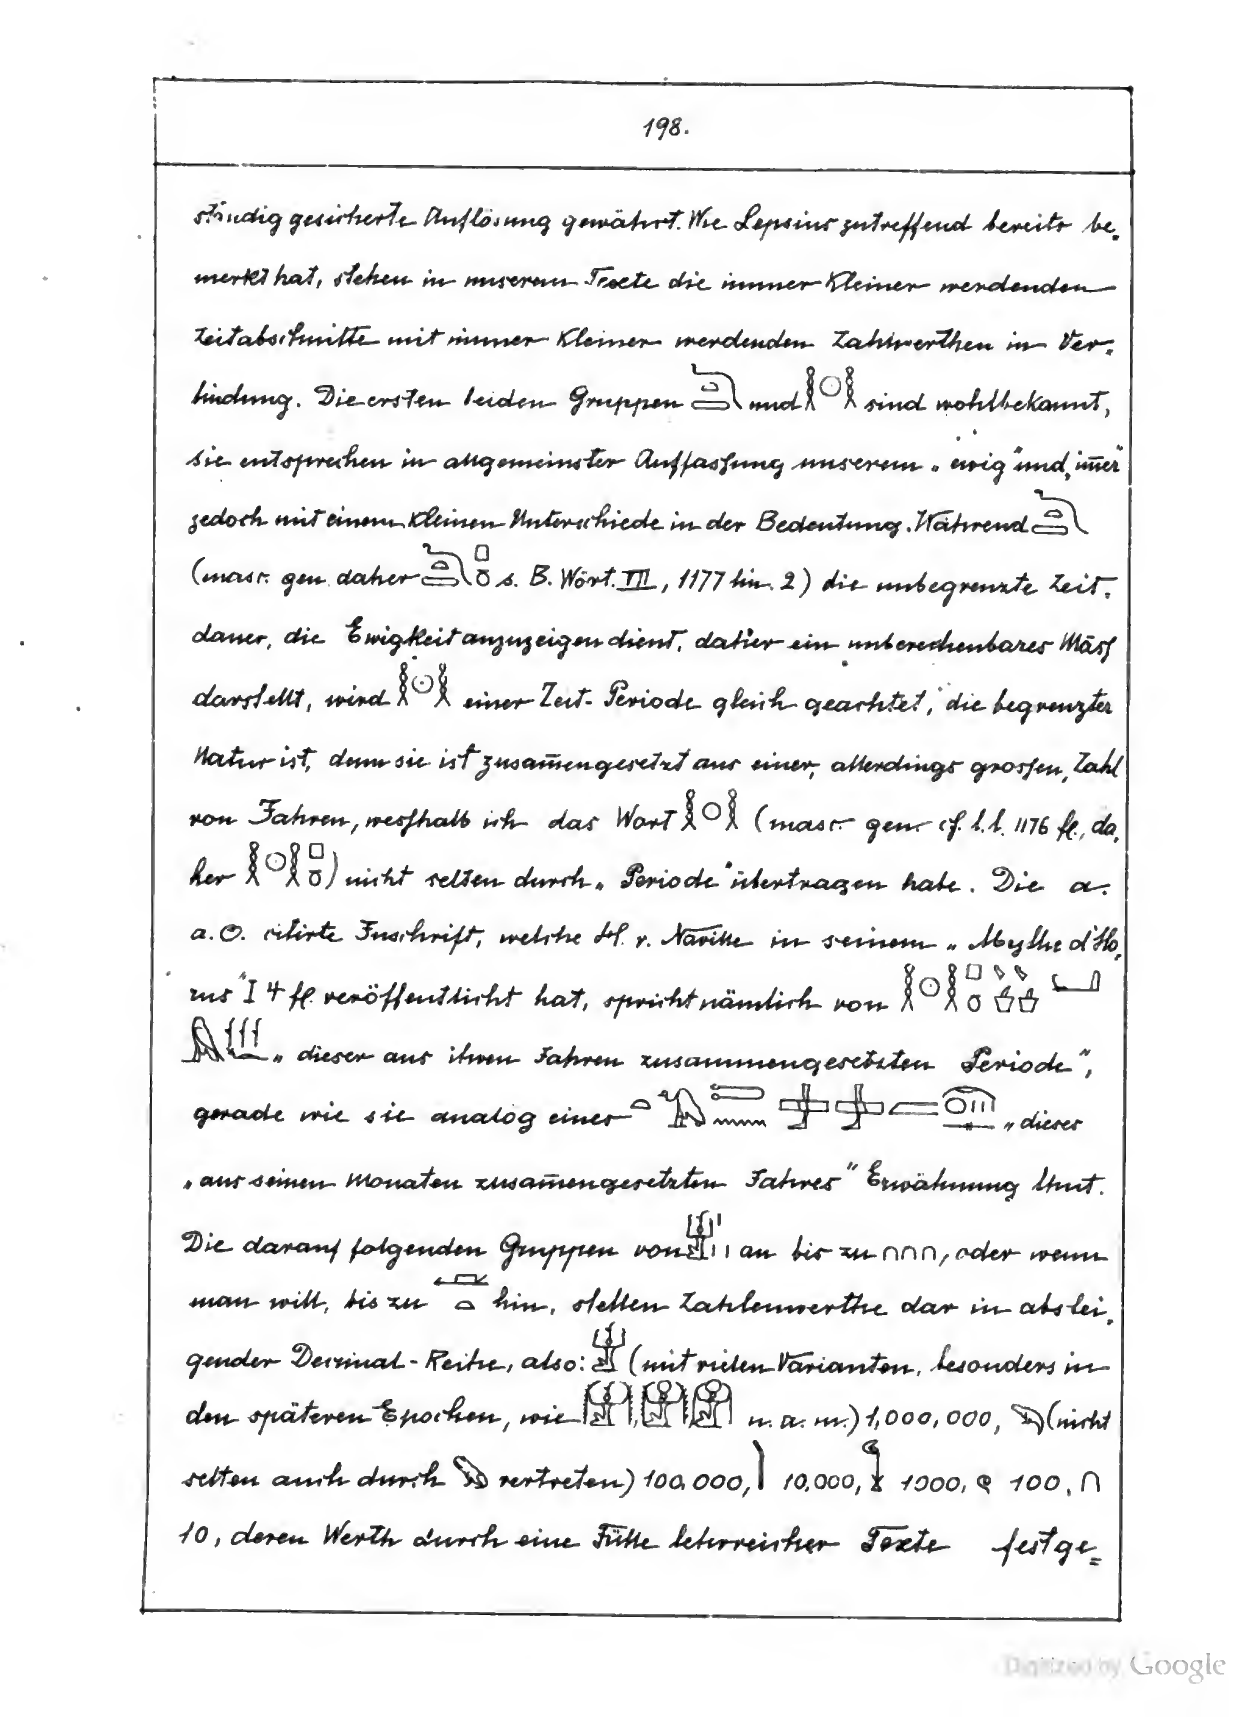 198.
ständig gesicherte Auflösung gewährt. Wie Lepsius zutreffend bereits be-
merkt hat, stehen in unserem Texte die immer kleiner werdenden
Zeitabschnitte mit immer kleiner werdenden Zahlwerthen in Ver-
bindung. Die ersten beiden Gruppen und 𓎛𓇳𓎛 sind wohlbekannt,
sie entsprechen in allgemeinster Auffassung unserem „ewig" und „im̄er"
jedoch mit einem kleinen Unterschiede in der Bedeutung. Während
(masc. gen. daher s. B. Wört. III, 1177 lin. 2) die unbegrenzte Zeit-
dauer, die Ewigkeit anzuzeigen dient, daher ein unberechenbares Mass
darstellt, wird 𓎛𓇳𓎛 einer Zeit-Periode gleich geachtet, die begrenzter
Natur ist, denn sie ist zusam̄engesetzt aus einer, allerdings grossen, Zahl
von Jahren, wesshalb ich das Wort 𓎛𓇳𓎛 (masc. gen. cf. l. l. 1176 fl., da-
her 𓎛𓇳𓎛) nicht selten durch „Periode" übertragen habe. Die a.
a. O. citirte Inschrift, welche H. v. Naville in seinem „Mythe d'Ho-
rus" I 4 fl. veröffentlicht hat, spricht nämlich von 𓎛𓇳𓎛
„dieser aus ihren Jahren zusammengesetzten Periode",
gerade wie sie analog einer „dieses
„aus seinen Monaten zusam̄engesetzten Jahres" Erwähnung thut.
Die darauf folgenden Gruppen von 𓁨 an bis zu ∩∩∩, oder wenn
man will, bis zu hin, stellen Zahlenwerthe dar in abstei-
gender Decimal-Reihe, also: 𓁨 (mit vielen Varianten, besonders in
den späteren Epochen, wie u. a. m.) 1,000,000, 𓆐 (nicht
selten auch durch vertreten) 100,000, 𓂭 10,000, 𓆼 1000, 𓍢 100, ∩
10, deren Werth durch eine Fülle lehrreicher Texte festge-
Digitized by Google